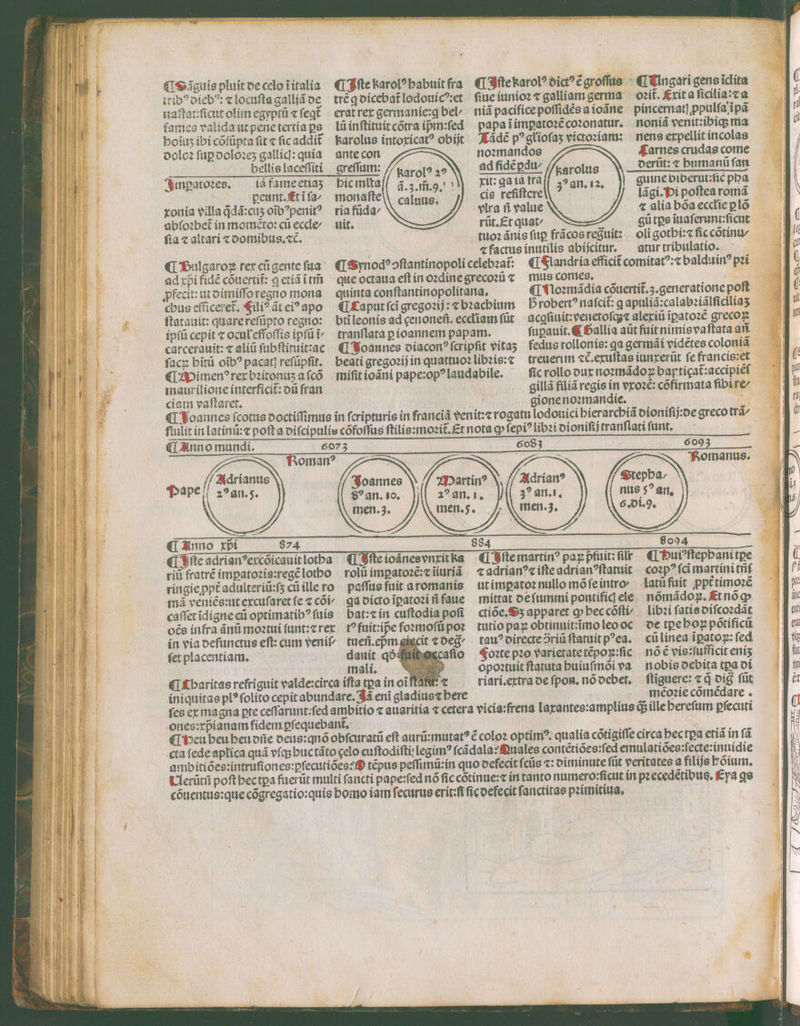 ¶ Sãguis pluit de celo ĩ italia
trib⁹ dieb⁹: ⁊ locusta galliã de
uastat: sicut olim egyptũ ⁊ seqͭ
fames valida ut pene tertia ps
hoĩuʒ ibi cõsũpta sit ⁊ sic addit
doloꝛ sup doloꝛeʒ: quia
bellis lacessiti
Impatoꝛes. iã fame etiaʒ
peunt. Et ĩ sa⸗
xonia villa q̃dã: cuʒ oĩb⁹ penit⁹
absoꝛbet in momẽto: cũ eccle⸗
sia ⁊ altari ⁊ domibus. ⁊c̃.
¶ Iste karol⁹ habuit fra
trẽ q dicebat lodouic⁹: et
erat rex germanie: q bel⸗
lũ instituit cõtra ip̃m: sed
karolus intoxicat⁹ obijt
ante con
gressum:
hic mlta
monaste
ria fũda⸗
uit.
karol⁹ 2⁹
ã. 3. m̃. 9.
caluus.
¶ Iste karol⁹ dict⁹ ẽ grossus
siue iunioꝛ ⁊ galliam germa
niã pacifice possidẽs a ioãne
papa ĩ impatoꝛẽ coꝛonatur.
Tãdẽ p⁹ victoꝛiam:
noꝛmandos
ad fidẽ pdu⸗
xit: qa iã tra
cis resistere
vlra ñ value
rũt. Et quat⸗
tuoꝛ ãnis sup frãcos regͥuit:
⁊ factus inutilis abijcitur.
karolus
3⁹ an. 12.
¶ Ungari gens ĩclita
oꝛit. Exit a sicilia: ⁊ a
pincernat ppulsa ĩ pã
noniã venit: ibiqʒ ma
nens expellit incolas
Carnes crudas come
derũt: ⁊ humanũ san
guinẽ biberut: sic pha
lãgi. Hi postea romã
⁊ alia bõa ecclie plõ
gũ tps ĩuaserunt: sicut
oli gothi: ⁊ sic cõtinu⸗
atur tribulatio.
¶ Bulgaroꝝ rex cũ gente sua
ad xp̃i fidẽ cõuertit: q etiã ĩ tm̃
pfecit: ut dimisso regno mona
chus efficeret. Fili⁹ ãt ei⁹ apo
statauit: quare resũpto regno:
ipsũ cepit ⁊ ocul effossis ipsũ ĩ⸗
carcerauit: ⁊ aliũ substituit: ac
sacꝝ hitũ oĩb⁹ pacat resũpsit.
¶ Dimen⁹ rex bꝛitonuʒ a scõ
maurilione interficit: dũ fran
ciam vastaret.
¶ Synod⁹ ꝯstantinopoli celebꝛat:
que octaua est in oꝛdine grecoꝛũ ⁊
quinta constantinopolitana.
¶ Caput sci gregoꝛij: ⁊ bꝛachium
bti leonis ad cenonen. eccliam sũt
translata p ioannem papam.
¶ Joannes diacon⁹ scripsit vitaʒ
beati gregoꝛij in quattuoꝛ libꝛis: ⁊
misit ioãni pape: op⁹ laudabile.
¶ Flandria efficit comitat⁹: ⁊ balduin⁹ pꝛi
mus comes.
¶ Noꝛmãdia cõuertit. 3. generatione post
H robert⁹ nascit: q apuliã: calabꝛiã sciliaʒ
acqsiuit: venetosqʒ ⁊ alexiũ ĩpatoꝛẽ grecoꝝ
supauit. ¶ Gallia aũt fuit nimis vastata an
fedus rollonis: qa germãi vidẽtes coloniã
treuerim ⁊c̃. exustas iunxerũt se francis: et
sic rollo dux noꝛmãdoꝝ baptiçat: accipies
gillã filiã regis in vxoꝛẽ: cõfirmata sibi re⸗
gione noꝛmandie.
¶ Joannes scotus doctissimus in scripturis in franciã venit: ⁊ rogatu lodouici hierarchiã dionisij: de greco trã⸗
stulit in latinũ: ⁊ post a discipulis cõfossus stilis: moꝛit. Et nota q sepi⁹ libꝛi dionisij translati sunt.
¶ Anno mundi. 6073 6083 6093
Roman⁹ Romanus.
Pape
Adrianus
2⁹ an. 5.
Joannes
8⁹ an. 10.
men. 3.
Martin⁹
2⁹ an. 1.
men. 5.
Adrian⁹
3⁹ an. 1.
men. 3.
Stepha⸗
nus 5⁹ an.
6. di. 9.
¶ Anno xp̃i 874 884 8094
¶ Iste adrian⁹ excõicauit lotha
riũ fratrẽ impatoꝛis: regẽ lotho
ringie, ppt adulteriũ: sʒ cũ ille ro
mã veniẽs: ut excusaret se ⁊ cõi⸗
casset ĩdigne cũ optimatib⁹ suis
oẽs infra ãnũ moꝛtui sunt: ⁊ rex
in via defunctus est: cum venis⸗
set placentiam.
¶ Iste ioãnes vnxit ka
rolũ impatoꝛẽ: ⁊ iiuriã
passus fuit a romanis
qa dicto ĩpatoꝛi ñ faue
bat: ⁊ in custodia posi
t⁹ fuit: ip̃e foꝛmosũ poꝛ
tueñ. ep̃m eiecit ⁊ deg̃⸗
dauit qd̃ fuit occasio
mali.
¶ Iste martin⁹ paꝝ p̃fuit: silr
⁊ adrian⁹ ⁊ iste adrian⁹ statuit
ut impatoꝛ nullo mõ se intro⸗
mittat de summi pontific ele
ctiõe. Sʒ apparet ꝙ hec cõsti⸗
tutio paꝝ obtinuit: ĩmo leo oc
tau⁹ directe ꝯriũ statuit p⁹ ea.
Foꝛte pꝛo varietate tẽpoꝝ: sic
opoꝛtuit statuta huiusmõi va
riari. extra de spon. nõ debet.
¶ Hui⁹ stephani tpe
coꝛp⁹ sci martini trãs
latũ fuit, ppt timoꝛẽ
nõmãdoꝝ. Et nõ ꝙ
libꝛi satis discoꝛdãt
de tpe hoꝝ põtificũ
cũ linea ĩpatoꝝ: sed
nõ ẽ vis: sufficit eniʒ
nobis debita tpa di
stiguere: ⁊ q̃ dig̃ sũt
mẽoꝛie cõmẽdare.
¶ Charitas refriguit valde: circa ista tpa in oĩ statu: ⁊
iniquitas pl⁹ solito cepit abundare. Jã eni gladius ⁊ here
ses ex magna pte cessarunt: sed ambitio ⁊ auaritia ⁊ cetera vicia: frena laxantes: amplius q̃ʒ ille heresum psecuti
ones: xp̃ianam fidem psequebant.
¶ Heu heu heu dñe deus: qnõ obscuratũ est aurũ: mutat⁹ ẽ coloꝛ optim⁹. qualia cõtigisse circa hec tpa etiã in sã
cta sede aplica quã vsqʒ huc tãto çelo custodisti: legim⁹ scãdala: Quales contẽtiões: sed emulatiões: secte: inuidie
ambitiões: intrusiones: psecutiões: O tẽpus pessimũ: in quo defecit scũs ⁊: diminute sũt veritates a filijs hõium.
Uerũtñ post hec tpa fuerũt multi sancti pape: sed nõ sic cõtinue: ⁊ in tanto numero: sicut in pꝛecedẽtibus. Eya qs
cõuentus: que cõgregatio: quis homo iam securus erit: si sic defecit sanctitas pꝛimitiua.